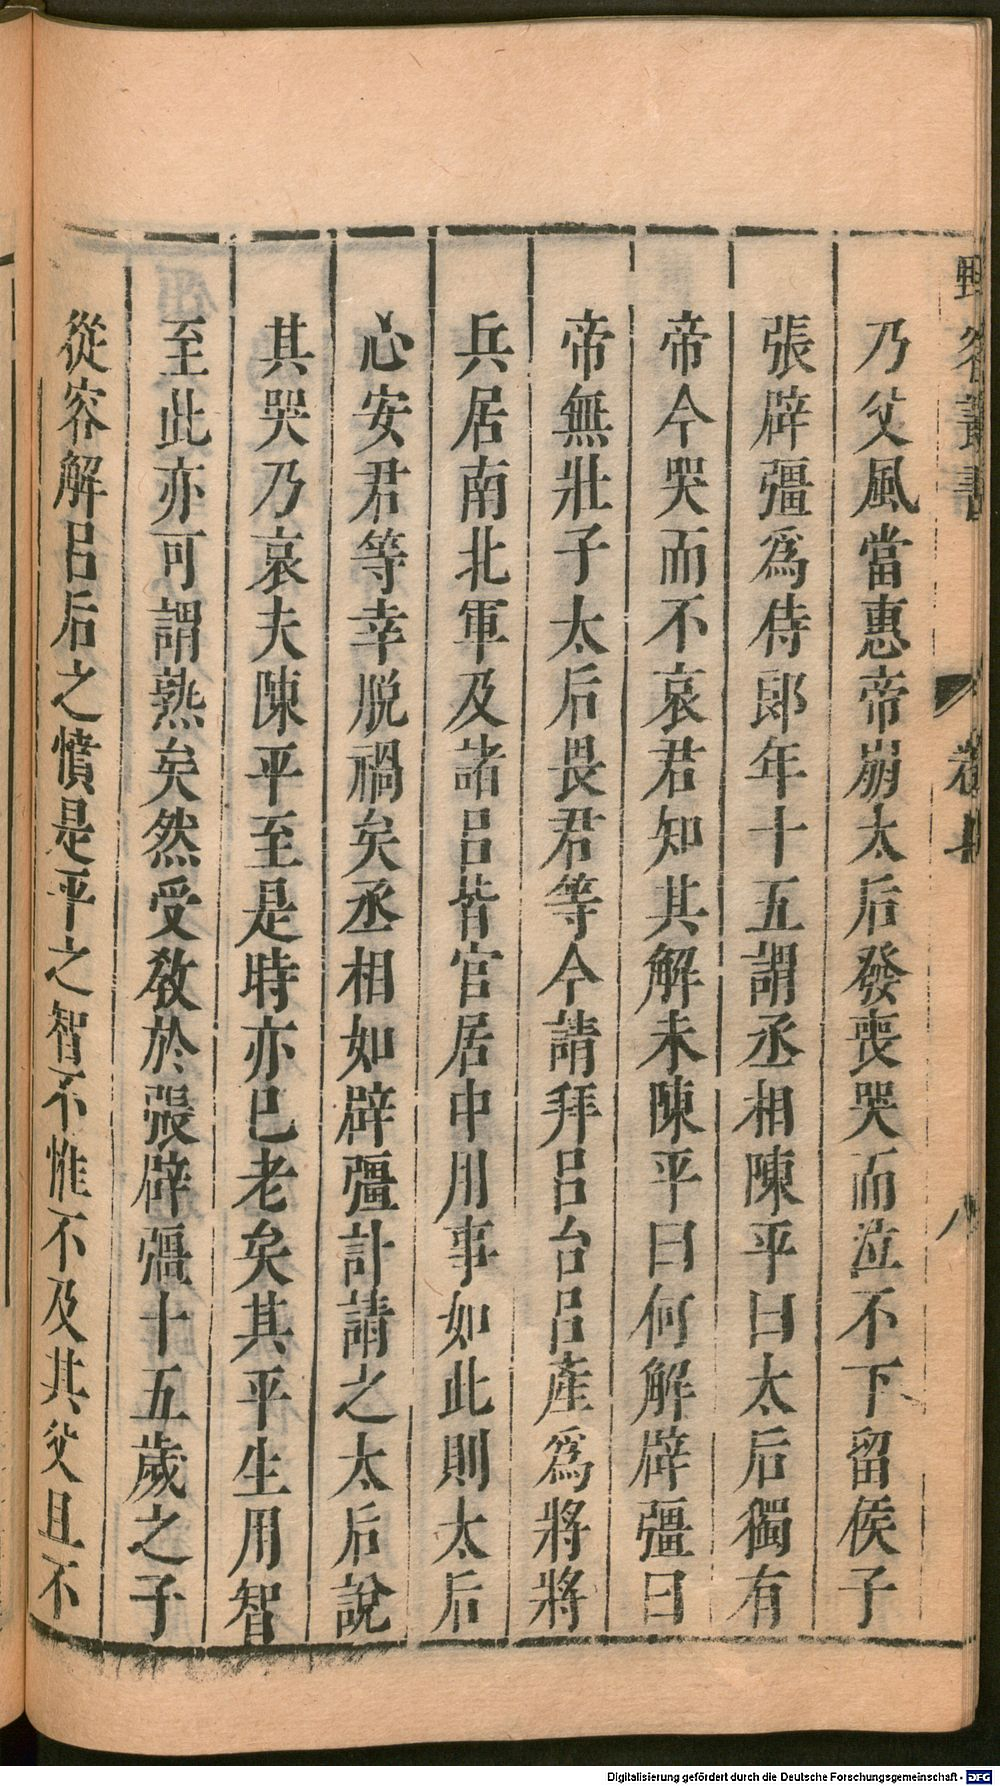 野客叢書
卷十
八
乃父風當惠帝崩太后發喪哭而泣不下留侯子
張辟彊爲侍郎年十五謂丞相陳平曰太后獨有
帝今哭而不哀君知其解未陳平曰何解辟彊曰
帝無壯子太后畏君等今請拜呂台呂產爲將將
兵居南北軍及諸呂皆官居中用事如此則太后
心安君等幸脫禍矣丞相如辟彊計請之太后說
其哭乃哀夫陳平至是時亦已老矣其平生用智
至此亦可謂熟矣然受教於張辟彊十五歲之子
從容解呂后之憤是平之智不惟不及其父且不
Digitalisierung gefördert durch die Deutsche Forschungsgemeinschaft - DFG